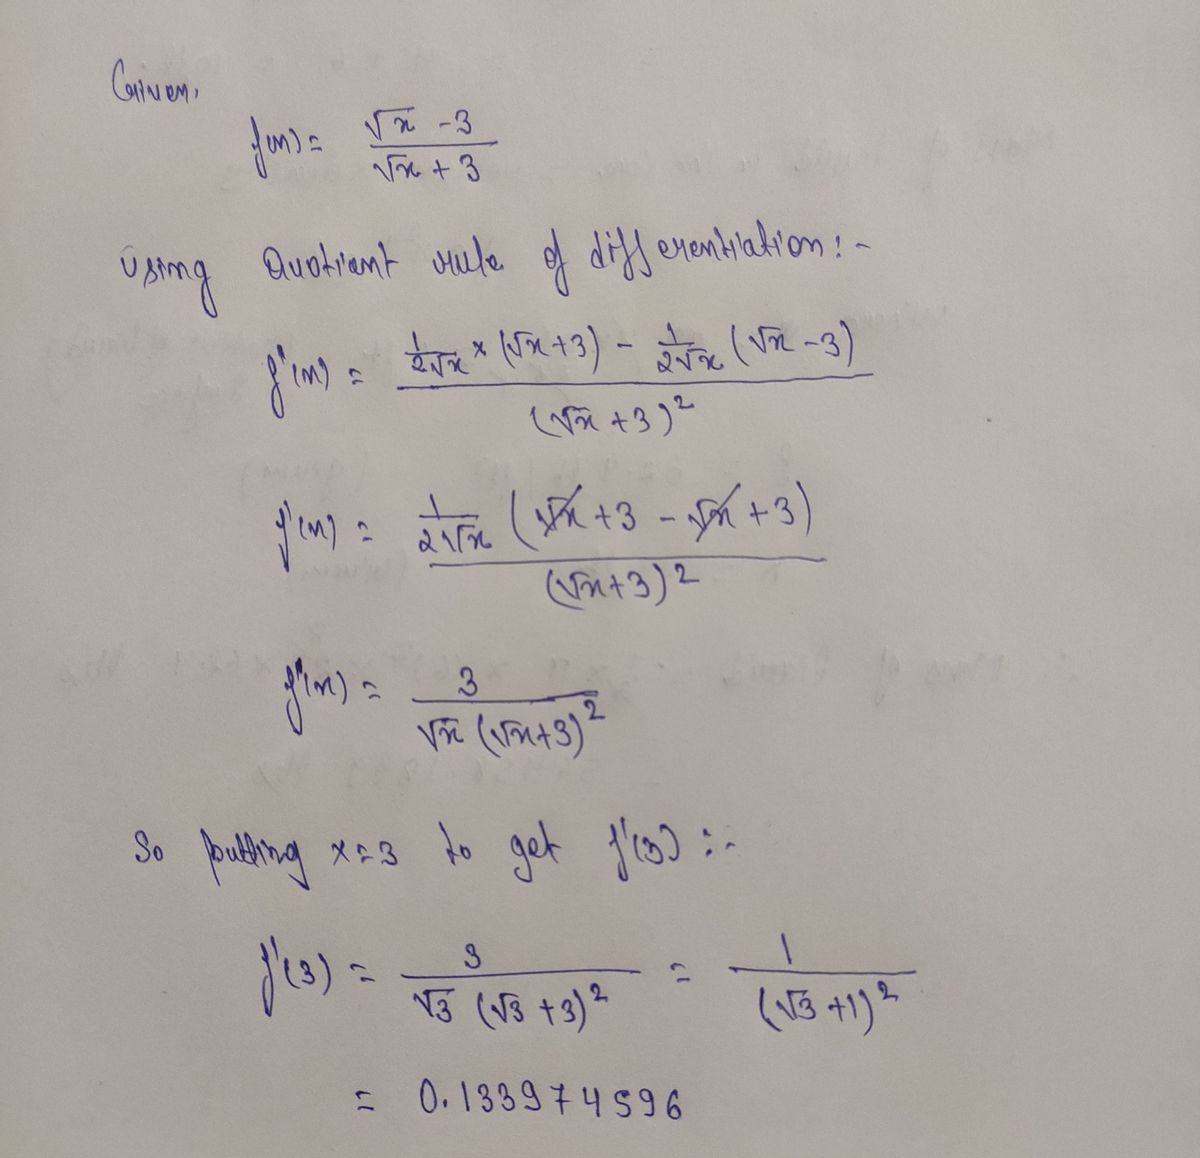 Given,
f(x) = (√x - 3)/(√x + 3)
Using Quotient rule of differentiation :-
f'(x) = (1/(2√x) × (√x + 3) - 1/(2√x) (√x - 3))/(√x + 3)²
f'(x) = (1/(2√x) (√x + 3 - √x + 3))/(√x + 3)²
f'(x) = 3/(√x (√x + 3)²)
So putting x = 3 to get f'(3) :-
f'(3) = 3/(√3 (√3 + 3)²) = 1/(√3 + 1)²
= 0.133974596